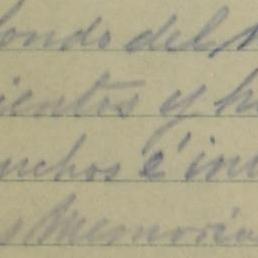 fondo del
ientos y h
uchos é in
s Memoria